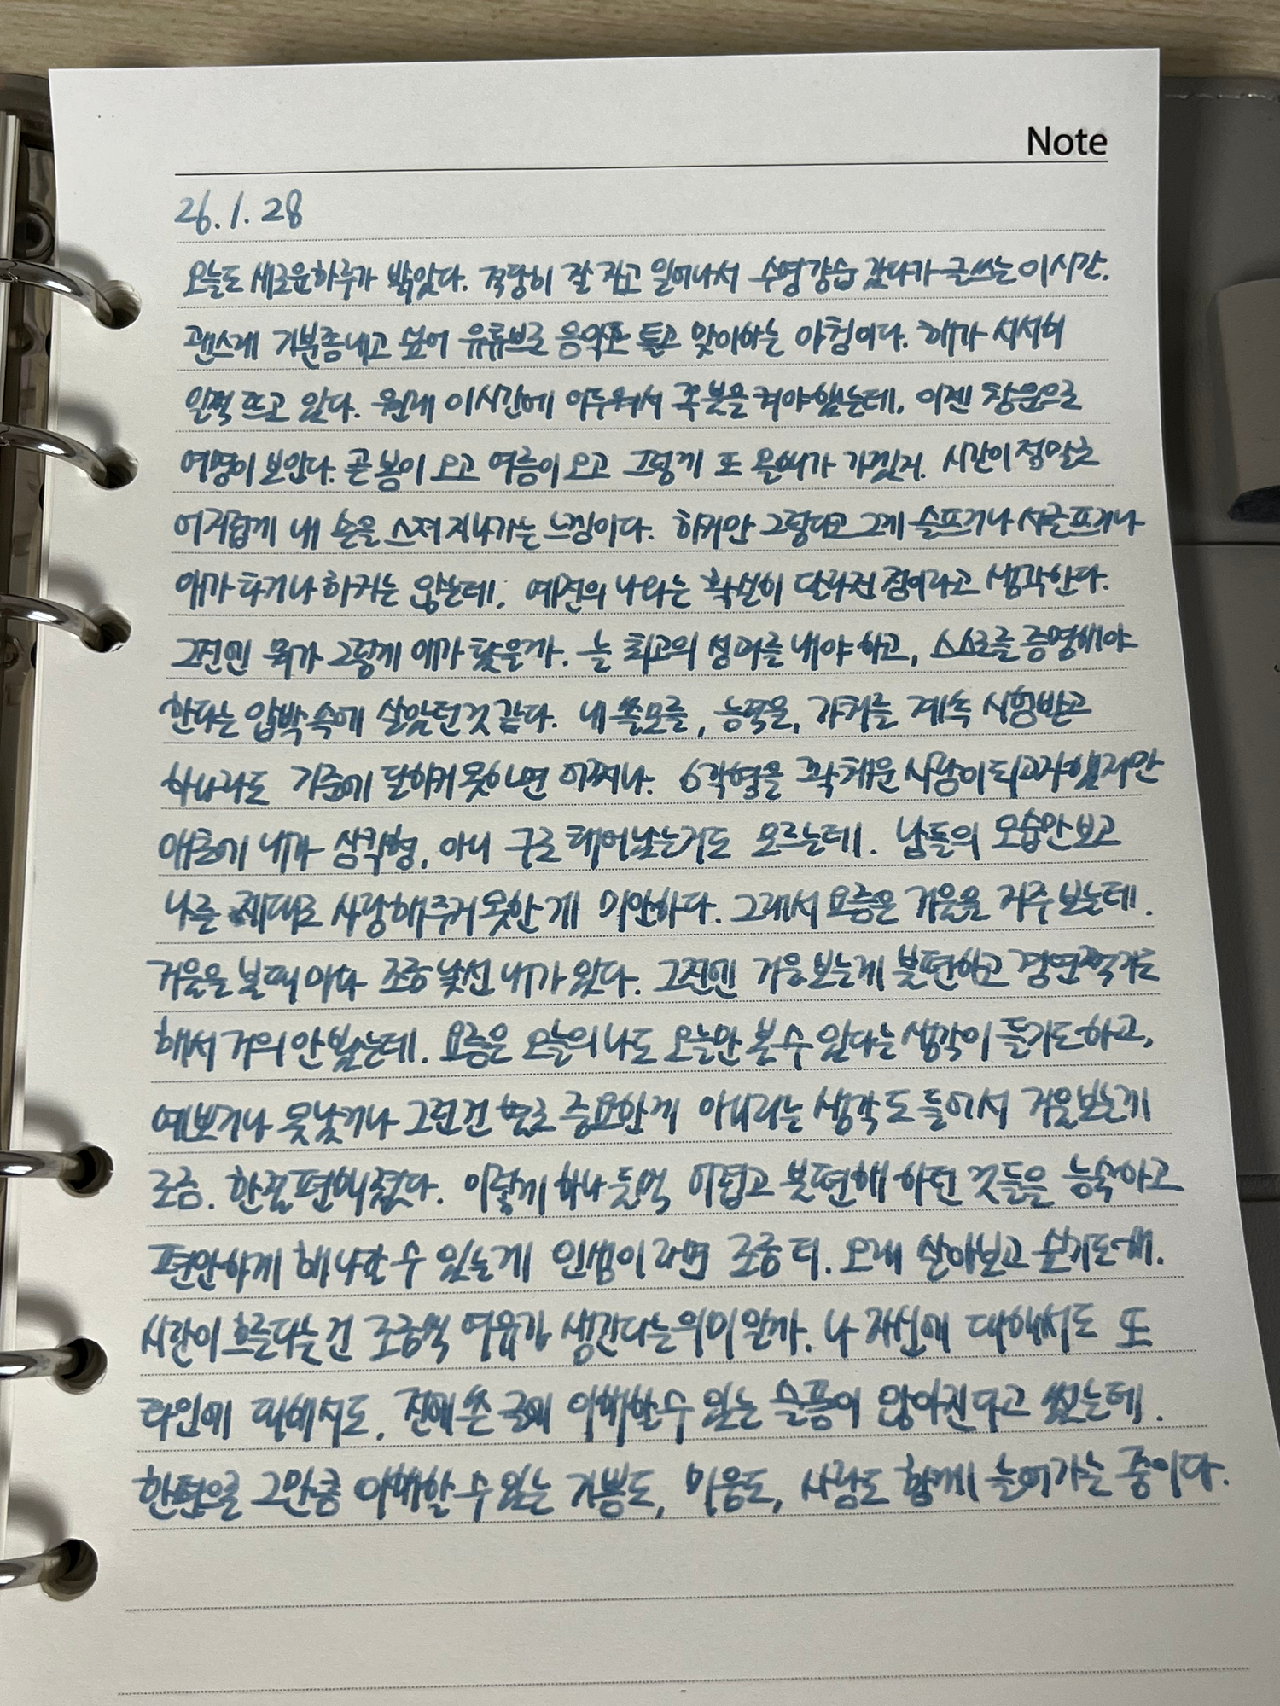 Note
26.1.28
오늘도 새로운 하루가 밝았다. 적당히 잘 자고 일어나서 수영강습 갔다가 글쓰는 이시간.
괜스레 기분좀내고 싶어 유튜브로 음악도 틀고 맞이하는 아침이다. 해가 서서히
일찍 뜨고 있다. 원래 이시간에 어두워서 꼭 불을 켜야했는데, 이젠 창문으로
여명이 보인다. 곧 봄이 오고 여름이 오고 그렇게 또 올해가 가겠지. 시간이 정말로
어지럽게 내 손을 스쳐 지나가는 느낌이다. 하지만 그렇다고 그게 슬프거나 서글프거나
애가 타거나 하지는 않는데, 예전의 나와는 확실히 달라진 점이라고 생각한다.
그전엔 뭐가 그렇게 애가 탔을까. 늘 최고의 성과를 내야 하고, 스스로를 증명해야
한다는 압박 속에 살았던것 같다. 내 쓸모를, 능력을, 가치를 계속 시험받고
하나라도 기준에 달하지 못하면 어쩌나. 6각형을 꽉 채운 사람이 되고자했지만
애초에 내가 삼각형, 아니 구로 태어났는지도 모르는데. 남들의 모습만 보고
나를 제대로 사랑해주지 못한 게 미안하다. 그래서 요즘은 거울을 자주 보는데.
거울을 볼 때 마다 조금 낯선 내가 있다. 그전엔 거울 보는게 불편하고 겸연쩍기도
해서 거의 안 봤는데. 요즘은 오늘의 나도 오늘만 볼 수 있다는 생각이 들기도 하고,
예쁘거나 못났거나 그런건 별로 중요한게 아니라는 생각도 들어서 거울보는게
조금. 한결 편해졌다. 이렇게 하나 둘씩 어렵고 불편해 하던 것들을 능숙하고
편안하게 해 나갈 수 있는게 인생이라면 조금 더. 오래 살아보고 싶기도 해.
시간이 흐른다는 건 조금씩 여유가 생긴다는 의미일까. 나 자신에 대해서도 또
타인에 대해서도. 전에 쓴 글에 이해할 수 있는 슬픔이 많아진다고 썼는데.
한편으론 그만큼 이해할 수 있는 기쁨도, 미움도, 사랑도 함께 늘어가는 중이다.